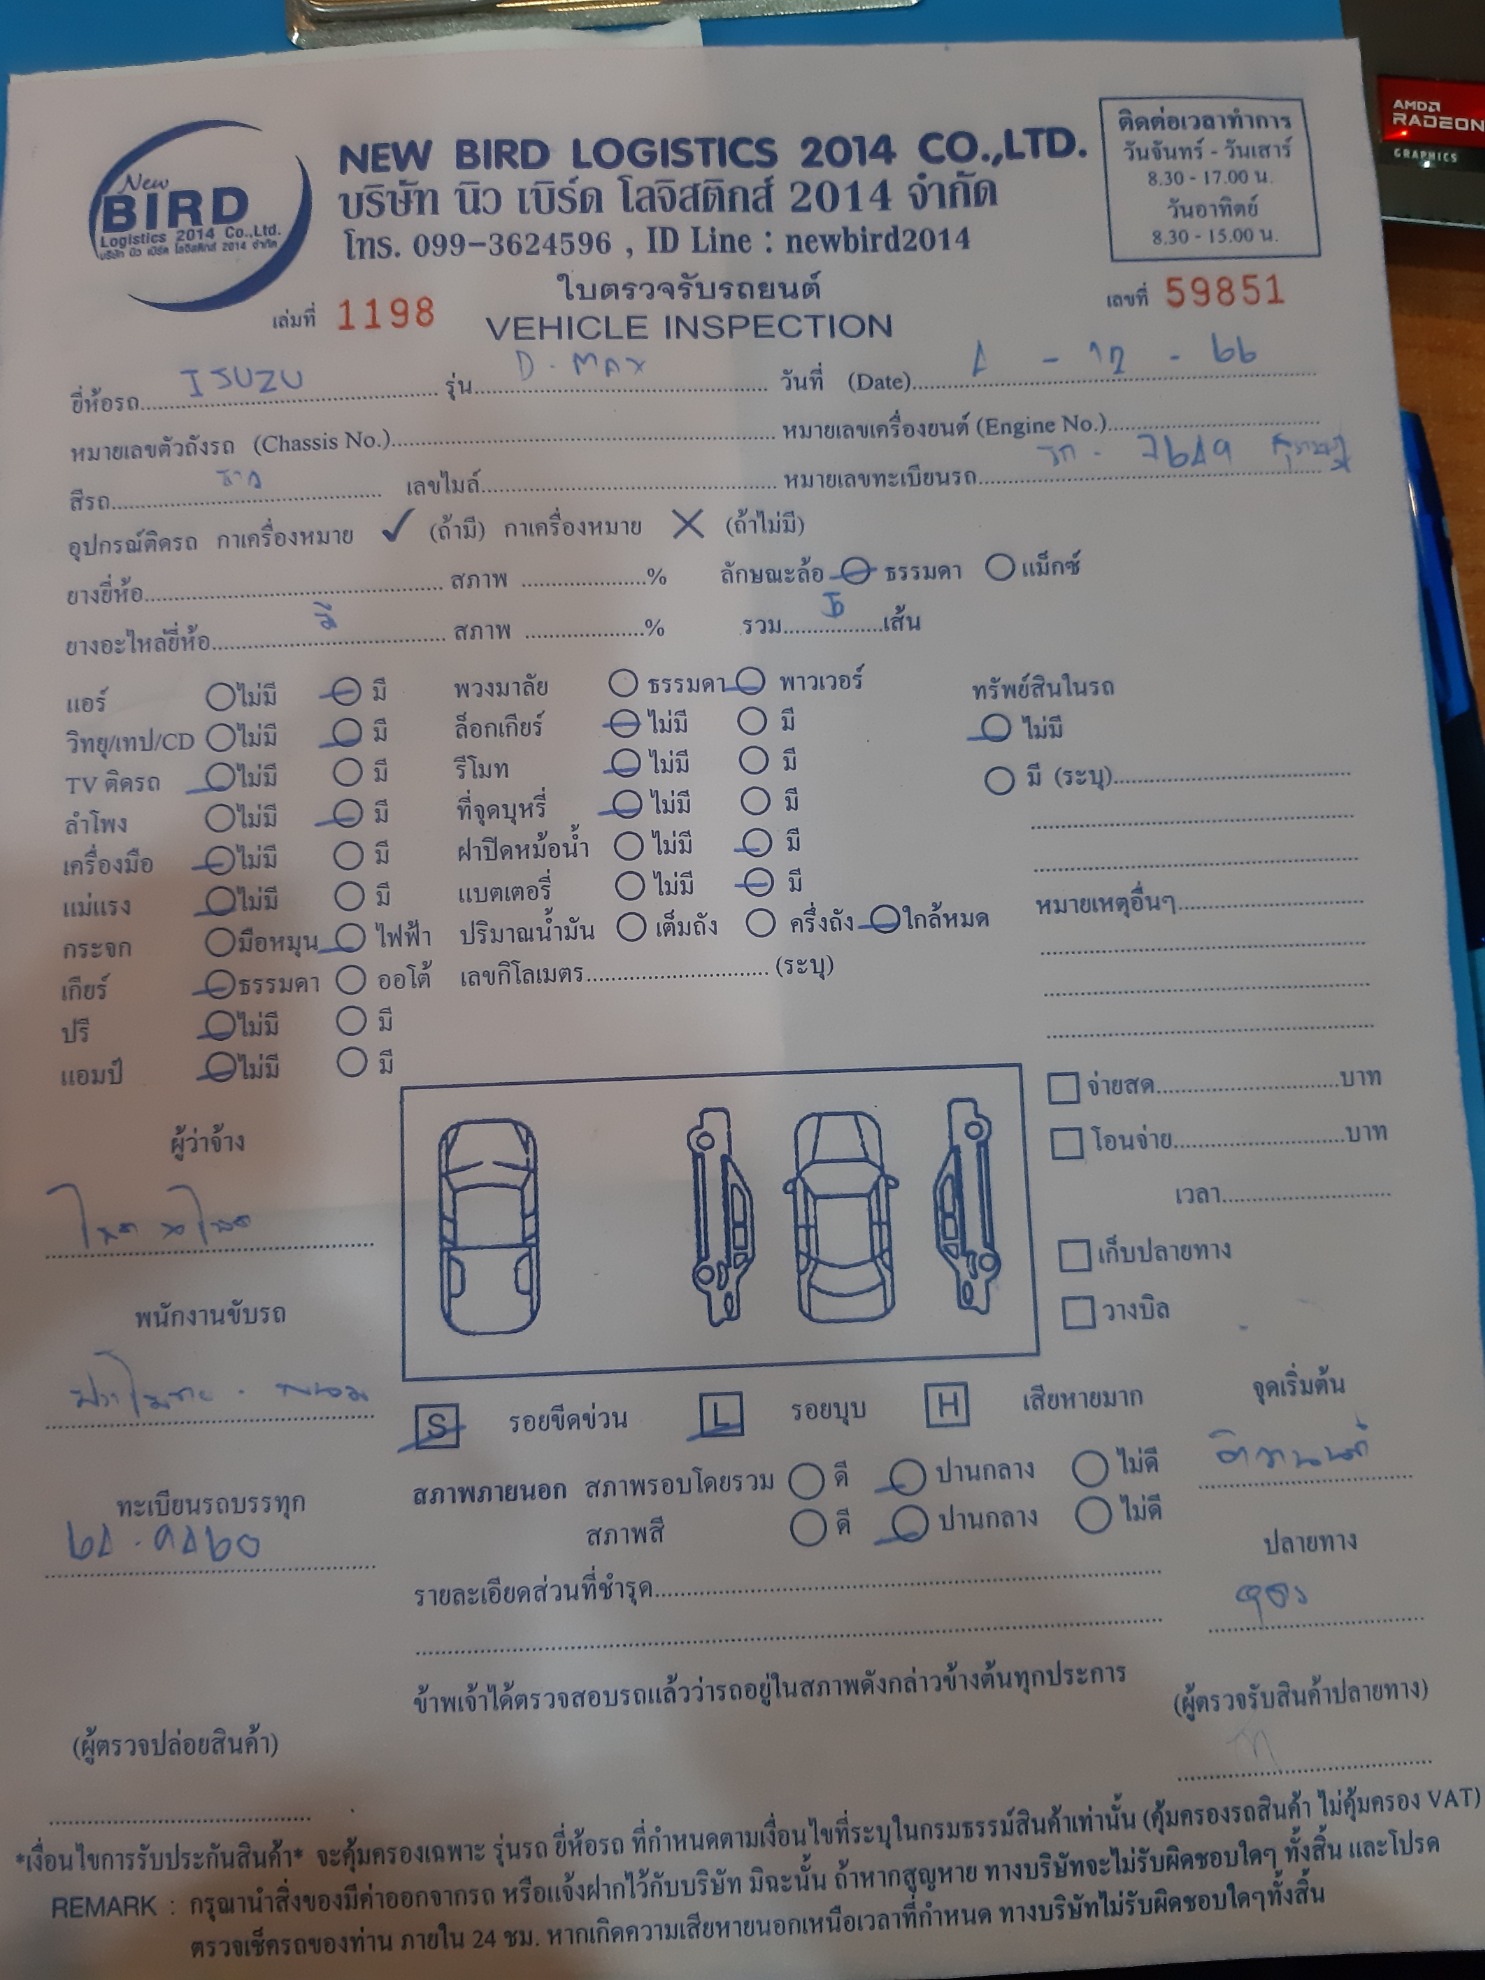 AMD
RADEON
GRAPHICS
New
BIRD
Logistics 2014 Co.,Ltd.
บริษัท นิว เบิร์ด โลจิสติกส์ 2014 จำกัด
NEW BIRD LOGISTICS 2014 CO.,LTD.
บริษัท นิว เบิร์ด โลจิสติกส์ 2014 จำกัด
โทร. 099-3624596 , ID Line : newbird2014
ติดต่อเวลาทำการ
วันจันทร์ - วันเสาร์
8.30 - 17.00 น.
วันอาทิตย์
8.30 - 15.00 น.
ใบตรวจรับรถยนต์
เล่มที่ 1198 VEHICLE INSPECTION เลขที่ 59851
ยี่ห้อรถ ISUZU รุ่น D-MAX วันที่ (Date) - 12 - 66
หมายเลขตัวถังรถ (Chassis No.) หมายเลขเครื่องยนต์ (Engine No.)
สีรถ เลขไมล์ หมายเลขทะเบียนรถ
อุปกรณ์ติดรถ กาเครื่องหมาย ✓ (ถ้ามี) กาเครื่องหมาย ✕ (ถ้าไม่มี)
ยางยี่ห้อ สภาพ % ลักษณะล้อ ธรรมดา แม็กซ์
ยางอะไหล่ยี่ห้อ มี สภาพ % รวม เส้น
แอร์ ไม่มี มี พวงมาลัย ธรรมดา พาวเวอร์ ทรัพย์สินในรถ
วิทยุ/เทป/CD ไม่มี มี ล็อกเกียร์ ไม่มี มี ไม่มี
TV ติดรถ ไม่มี มี รีโมท ไม่มี มี มี (ระบุ)
ลำโพง ไม่มี มี ที่จุดบุหรี่ ไม่มี มี
เครื่องมือ ไม่มี มี ฝาปิดหม้อน้ำ ไม่มี มี
แม่แรง ไม่มี มี แบตเตอรี่ ไม่มี มี หมายเหตุอื่นๆ
กระจก มือหมุน ไฟฟ้า ปริมาณน้ำมัน เต็มถัง ครึ่งถัง ใกล้หมด
เกียร์ ธรรมดา ออโต้ เลขกิโลเมตร (ระบุ)
ปรี ไม่มี มี
แอมป์ ไม่มี มี
จ่ายสด บาท
ผู้ว่าจ้าง
โอนจ่าย บาท
เวลา
เก็บปลายทาง
พนักงานขับรถ
วางบิล
S รอยขีดข่วน L รอยบุบ H เสียหายมาก จุดเริ่มต้น
ติวานนท์
สภาพภายนอก สภาพรอบโดยรวม ดี ปานกลาง ไม่ดี
ทะเบียนรถบรรทุก
สภาพสี ดี ปานกลาง ไม่ดี
ปลายทาง
รายละเอียดส่วนที่ชำรุด
ข้าพเจ้าได้ตรวจสอบรถแล้วว่ารถอยู่ในสภาพดังกล่าวข้างต้นทุกประการ
(ผู้ตรวจปล่อยสินค้า) (ผู้ตรวจรับสินค้าปลายทาง)
*เงื่อนไขการรับประกันสินค้า* จะคุ้มครองเฉพาะ รุ่นรถ ยี่ห้อรถ ที่กำหนดตามเงื่อนไขที่ระบุในกรมธรรม์สินค้าเท่านั้น (คุ้มครองรถสินค้า ไม่คุ้มครอง VAT)
REMARK : กรุณานำสิ่งของมีค่าออกจากรถ หรือแจ้งฝากไว้กับบริษัท มิฉะนั้น ถ้าหากสูญหาย ทางบริษัทจะไม่รับผิดชอบใดๆ ทั้งสิ้น และโปรด
ตรวจเช็ครถของท่าน ภายใน 24 ชม. หากเกิดความเสียหายนอกเหนือเวลาที่กำหนด ทางบริษัทไม่รับผิดชอบใดๆทั้งสิ้น